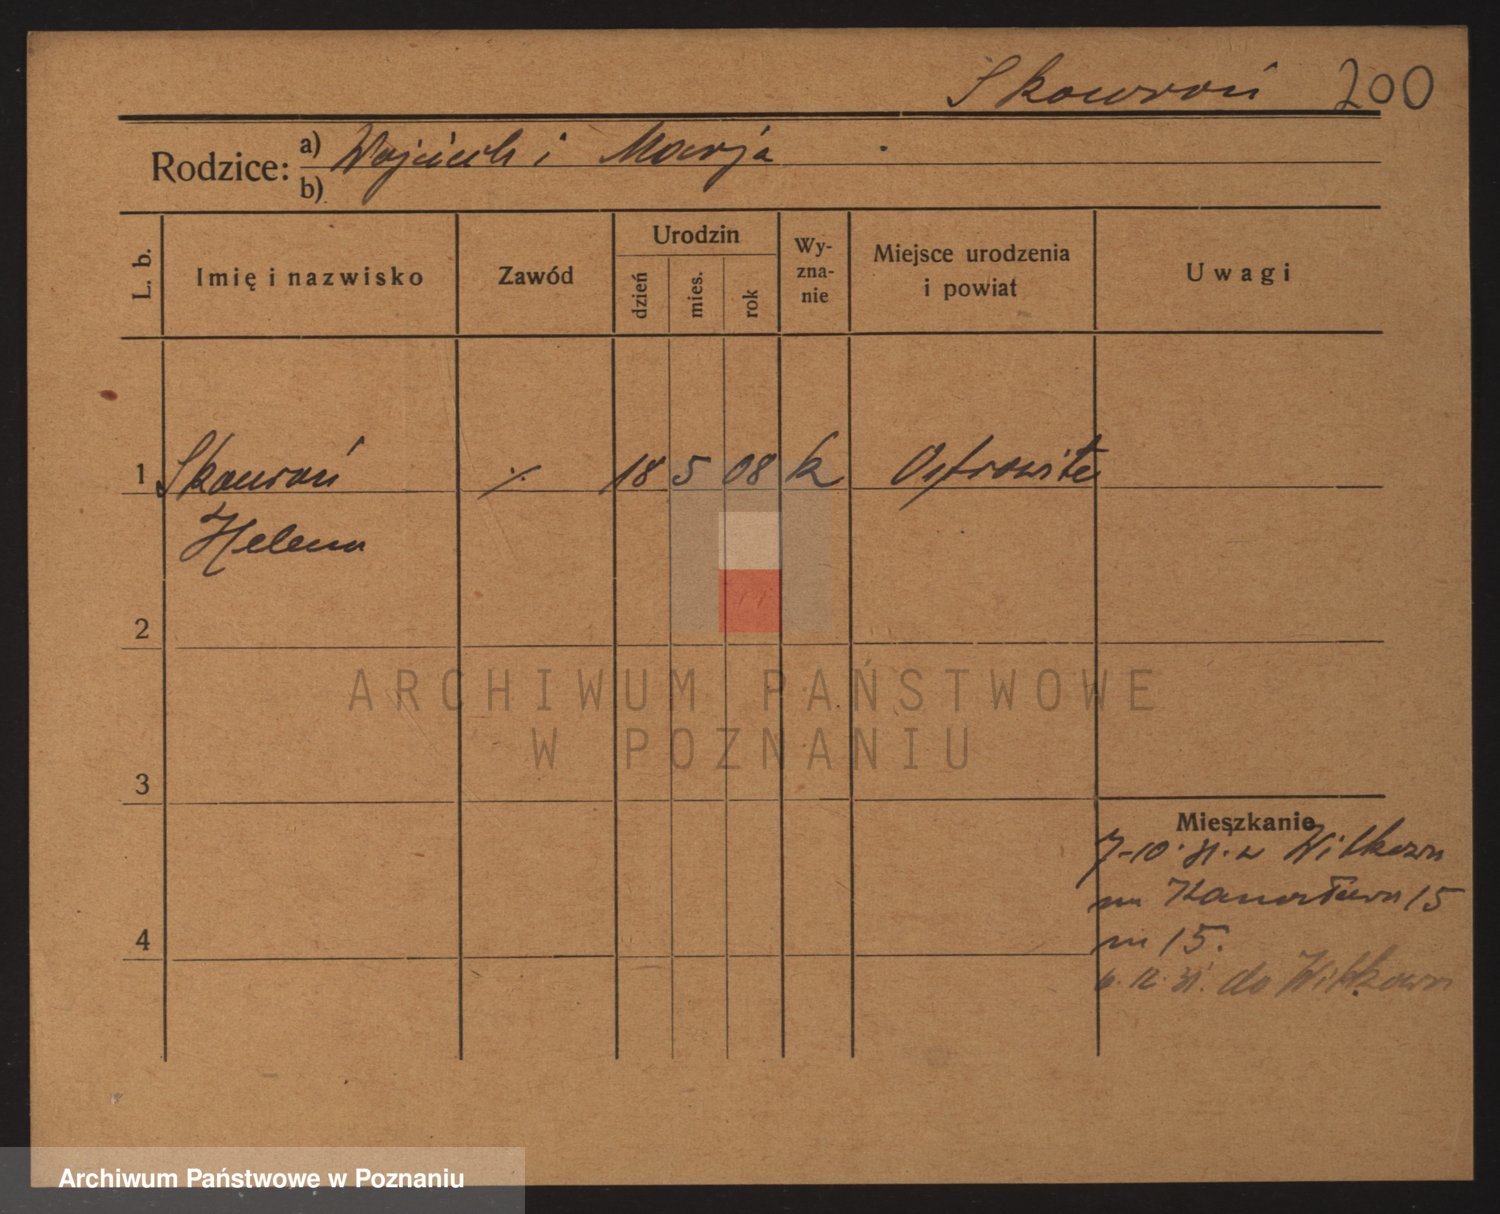 Skowroń 200
Rodzice: a) Wojciech i Marja
b)
L. b. Imię i nazwisko Zawód Urodzin dzień mies. rok Wy-zna-nie Miejsce urodzenia i powiat Uwagi
1 Skowroń ·/· 18 5 08 k Ostrowite
Helena
2
3
4
Mieszkanie
7-10. 31. z Witkowa
na
15
m 15.
6. 12. 31. do Witkowa
ARCHIWUM PAŃSTWOWE
W POZNANIU
Archiwum Państwowe w Poznaniu